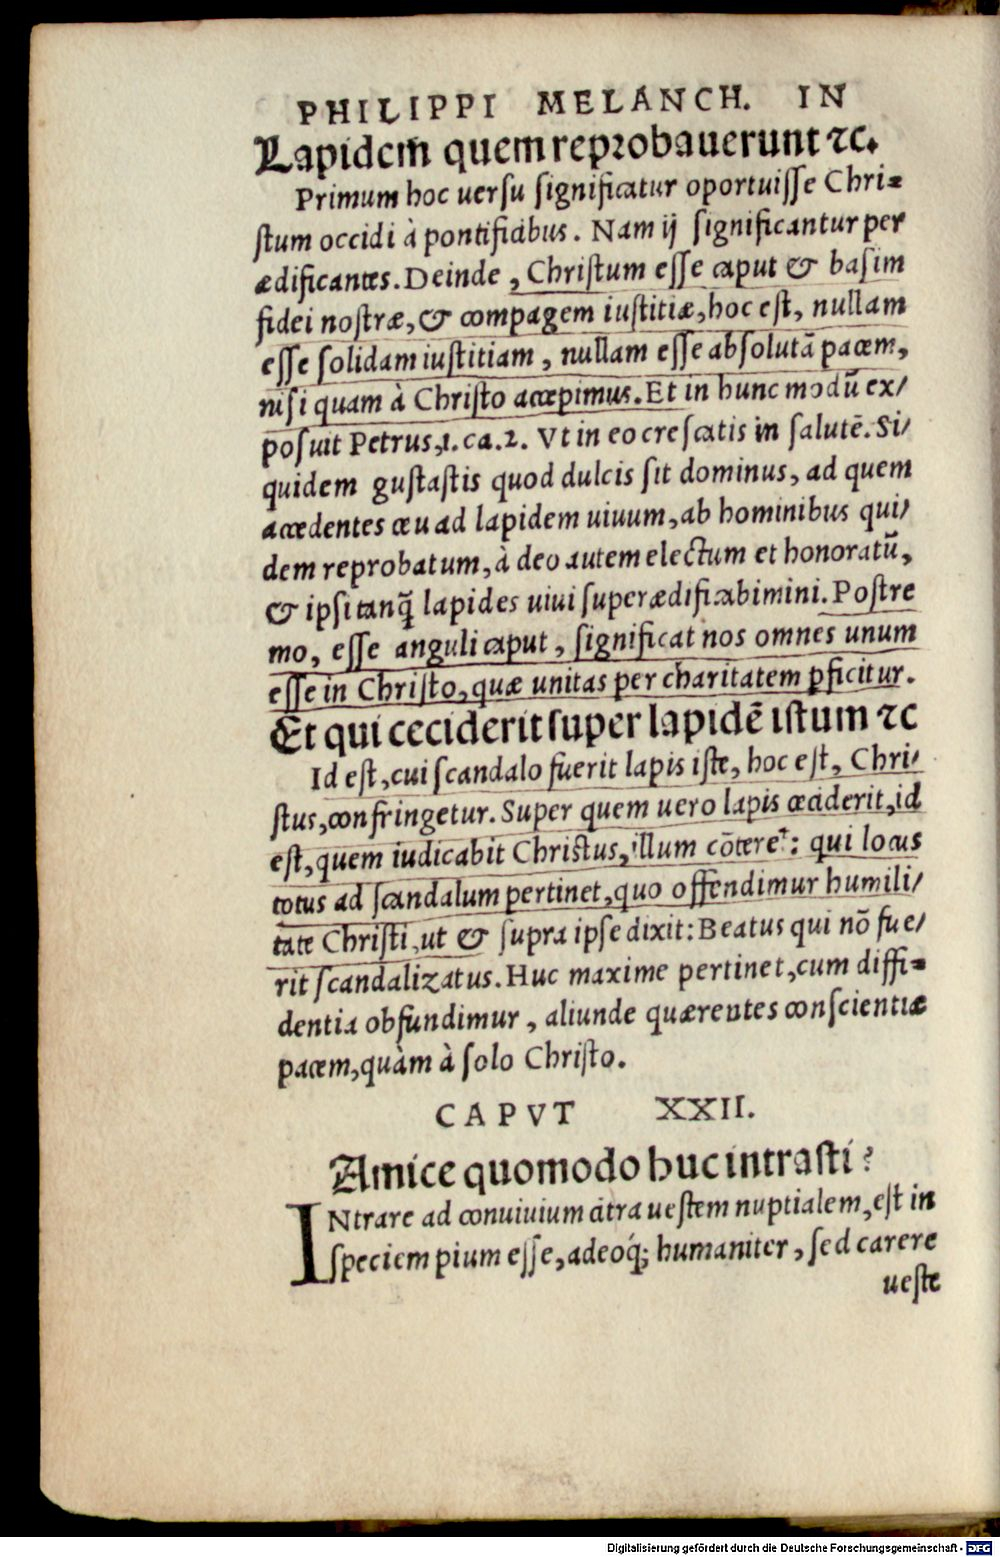 PHILIPPI MELANCH. IN
Lapidem̃ quem reprobauerunt ⁊c.
Primum hoc uersu significatur oportuisse Chri-
stum occidi à pontificibus. Nam ij significantur per
ædificantes. Deinde, Christum esse caput & basim
fidei nostræ, & compagem iustitiæ, hoc est, nullam
esse solidam iustitiam, nullam esse absolutã pacem,
nisi quam à Christo accepimus. Et in hunc modũ ex/
posuit Petrus, 1. ca. 2. Vt in eo crescatis in salutẽ. Si/
quidem gustastis quod dulcis sit dominus, ad quem
accedentes ceu ad lapidem uiuum, ab hominibus qui/
dem reprobatum, à deo autem electum et honoratũ,
& ipsi tanq̃ lapides uiui superædificabimini. Postre
mo, esse anguli caput, significat nos omnes unum
esse in Christo, quæ unitas per charitatem ꝑficitur.
Et qui ceciderit super lapidẽ istum ⁊c
Id est, cui scandalo fuerit lapis iste, hoc est, Chri/
stus, confringetur. Super quem uero lapis ceciderit, id
est, quem iudicabit Christus, illum cõteret: qui locus
totus ad scandalum pertinet, quo offendimur humili/
tate Christi, ut & supra ipse dixit: Beatus qui nõ fue/
rit scandalizatus. Huc maxime pertinet, cum diffi-
dentia obfundimur, aliunde quærentes conscientiæ
pacem, quàm à solo Christo.
CAPVT XXII.
Amice quomodo huc intrasti?
INtrare ad conuiuium citra uestem nuptialem, est in
speciem pium esse, adeoq́; humaniter, sed carere
ueste
Digitalisierung gefördert durch die Deutsche Forschungsgemeinschaft - DFG